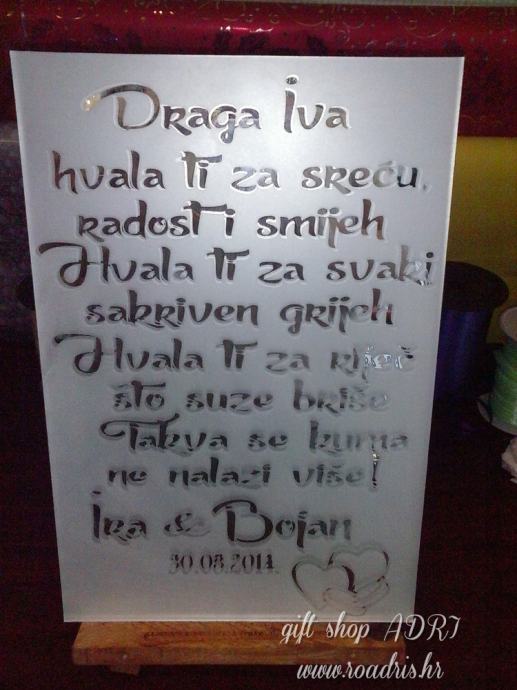 Draga Iva
hvala ti za sreću,
radost i smijeh
Hvala ti za svaki
sakriven grijeh
Hvala ti za riječ
što suze briše
Takva se kuma
ne nalazi više!
Ira & Bojan
30.08.2014.
gift shop ADRI
www.roadris.hr